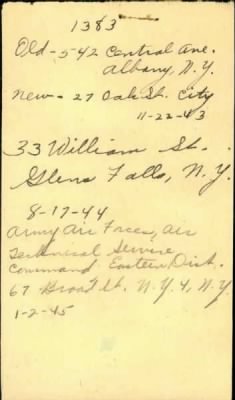 1383
Old - 542 Central Ave.
Albany, N.Y.
New - 27 Oak St. City
11-22-43
33 William St.
Glens Falls, N.Y.
8-17-44
Army Air Forces, Air
Technical Service
Command. Eastern Dist.
67 Broad St. N.Y. 4, N.Y.
1-2-45